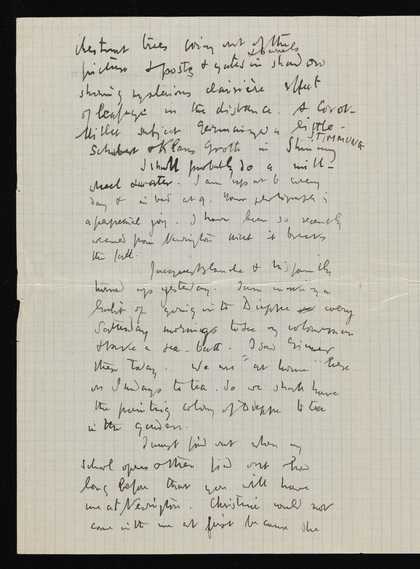 chestnut trees coming out of the
& barrels
picture & posts & gates in shadow
showing mysterious clairière effect
of leafage in the distance. A Corot-
Millet subject Germanized a little -
Schubert & Klaus Groth in Stimmung
STIMMUNG
I shall probably do a mill-
wheel & water. I am up at 6 every
day & in bed at 9. Your photograph is
a perpetual joy. I have been so recently
weaned from Newington that it breaks
the fall.
Jacques Blanche & his family
turned up yesterday. I am making a
habit of going into Dieppe every
Saturday mornings to see my colourman
& have a sea-bath. I saw
there today. We are "at home" here
on Sundays to tea. So we shall have
the painting colony of Dieppe to tea
in the garden.
I must find out when my
school opens & then find out how
long before that you will have
me at Newington. Christine would not
come with me at first because she